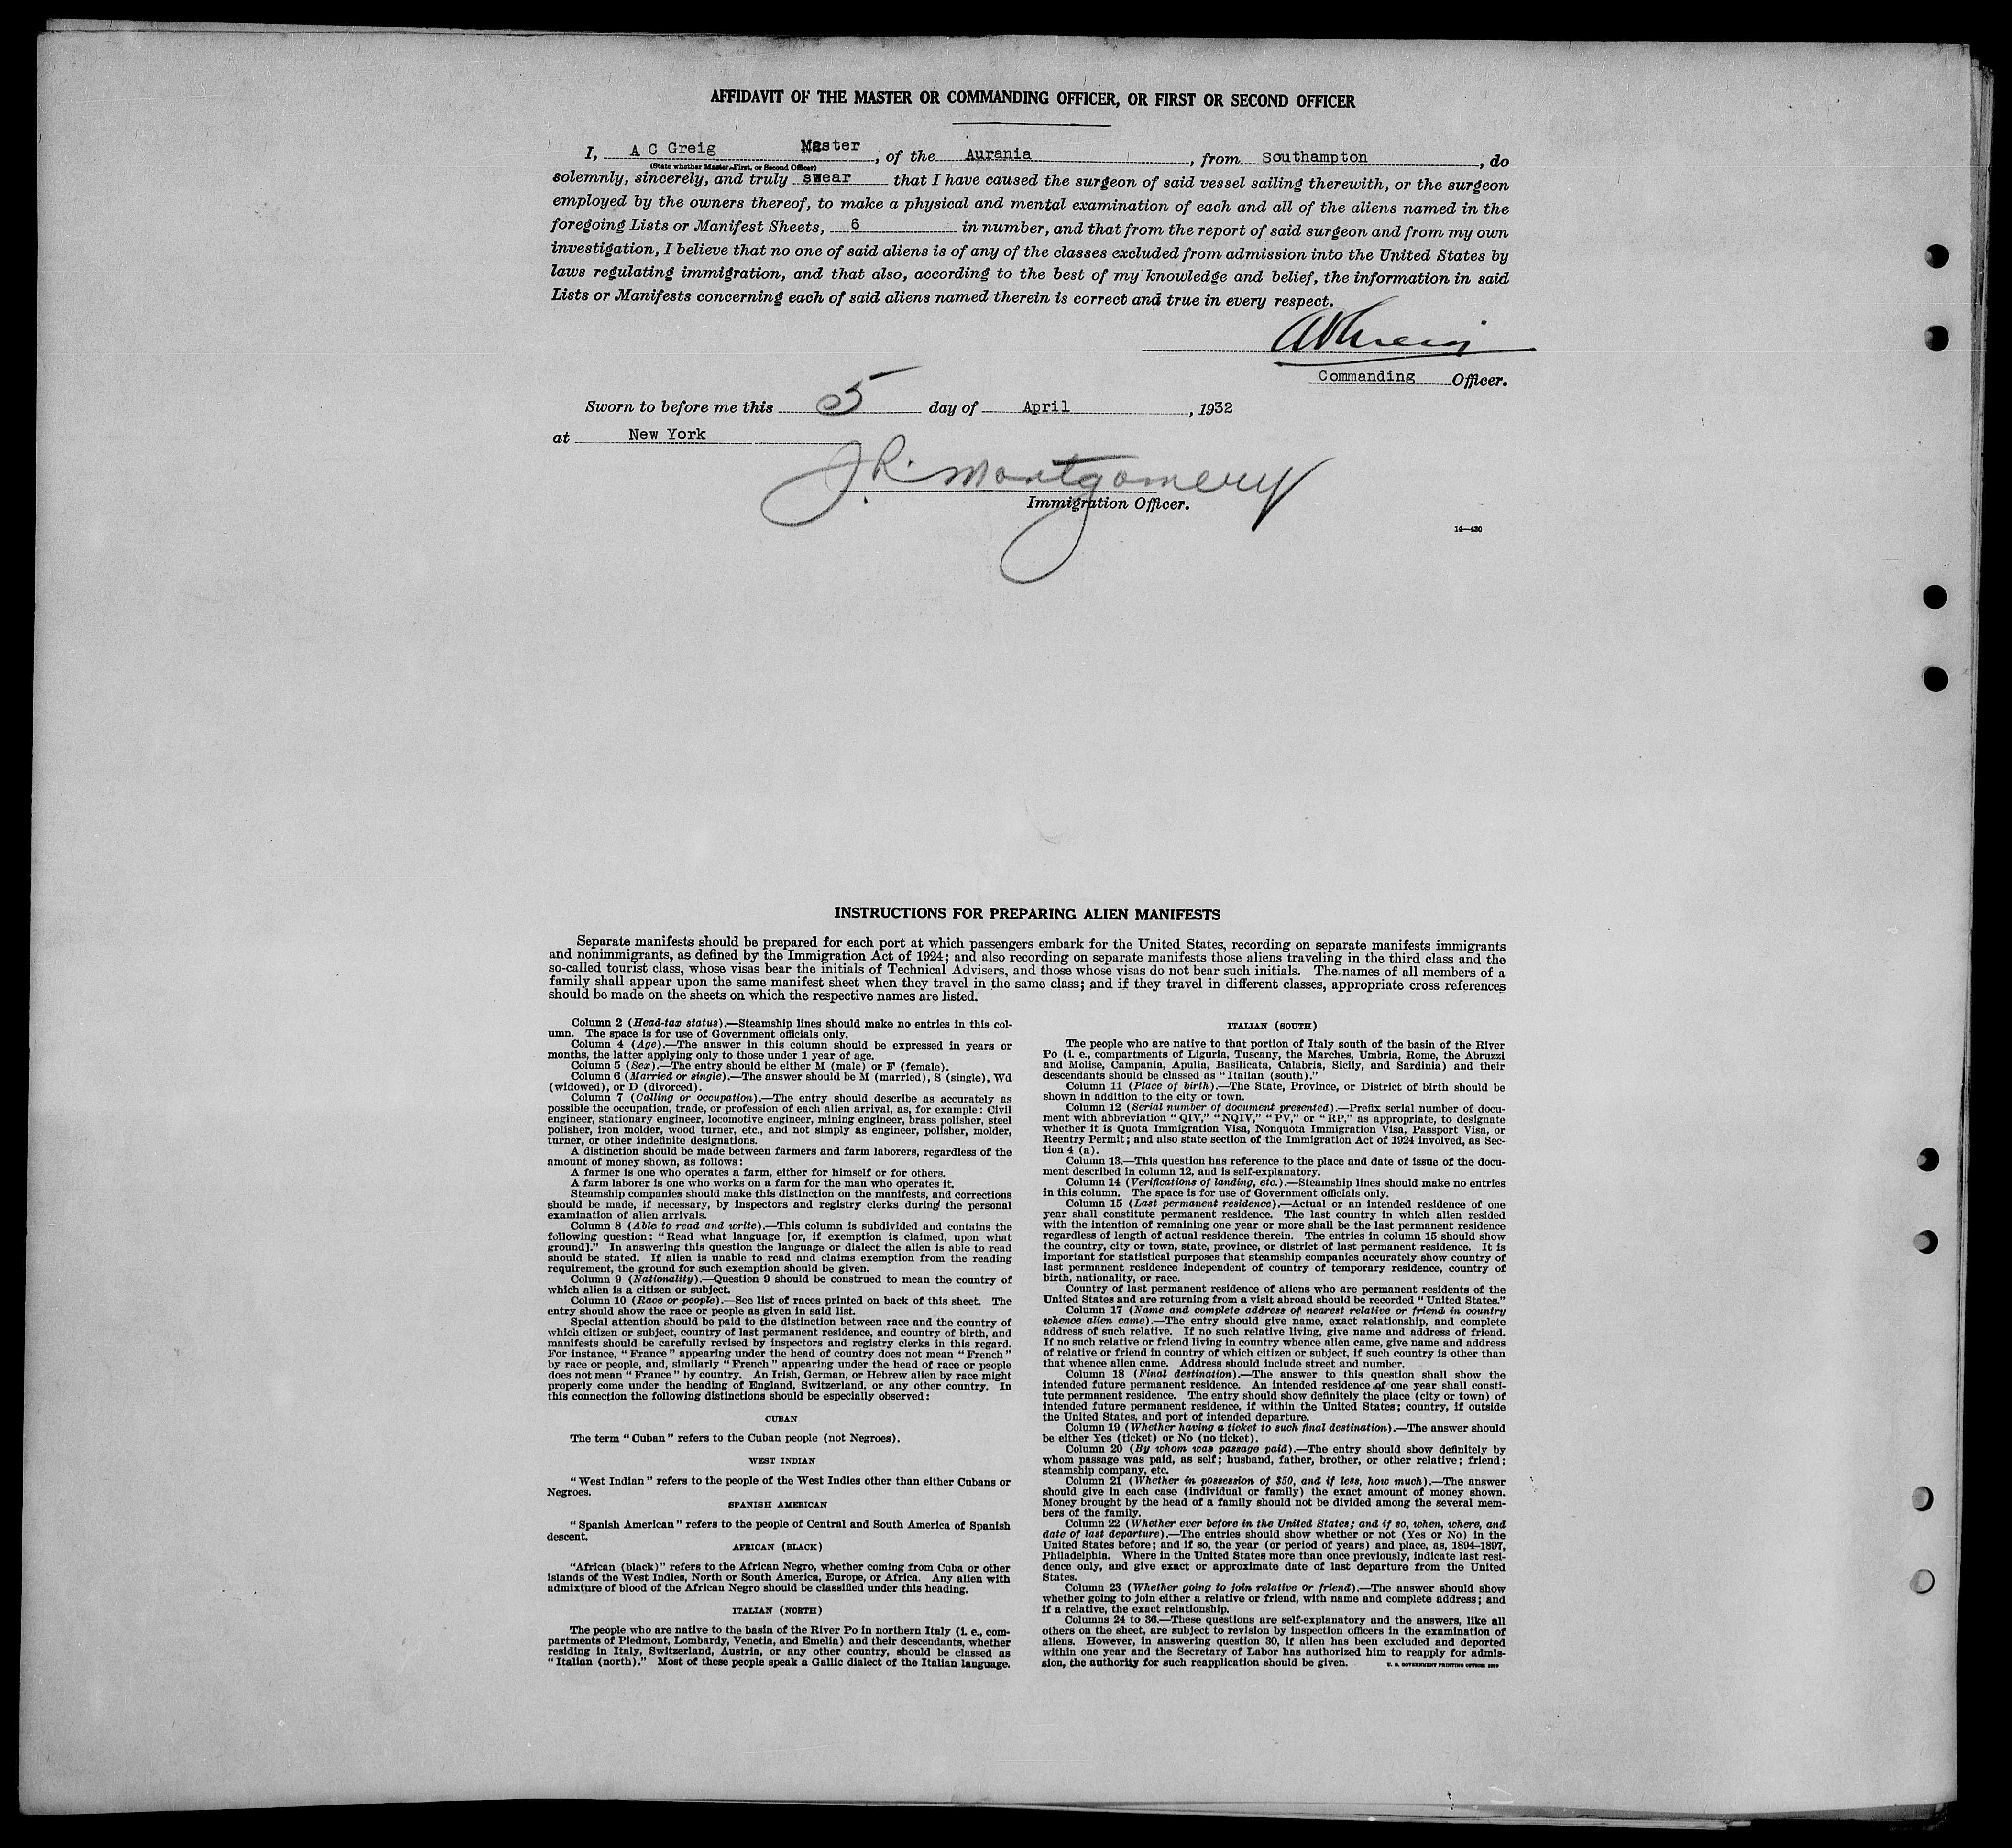 AFFIDAVIT OF THE MASTER OR COMMANDING OFFICER, OR FIRST OR SECOND OFFICER
I, A C Greig Master, of the Aurania, from Southampton, do
(State whether Master, First, or Second Officer)
solemnly, sincerely, and truly swear that I have caused the surgeon of said vessel sailing therewith, or the surgeon
employed by the owners thereof, to make a physical and mental examination of each and all of the aliens named in the
foregoing Lists or Manifest Sheets, 6 in number, and that from the report of said surgeon and from my own
investigation, I believe that no one of said aliens is of any of the classes excluded from admission into the United States by
laws regulating immigration, and that also, according to the best of my knowledge and belief, the information in said
Lists or Manifests concerning each of said aliens named therein is correct and true in every respect.
ACGreig
Commanding Officer.
Sworn to before me this 5 day of April, 1932
at New York
J R. Montgomery
Immigration Officer.
14—430
INSTRUCTIONS FOR PREPARING ALIEN MANIFESTS
Separate manifests should be prepared for each port at which passengers embark for the United States, recording on separate manifests immigrants
and nonimmigrants, as defined by the Immigration Act of 1924; and also recording on separate manifests those aliens traveling in the third class and the
so-called tourist class, whose visas bear the initials of Technical Advisers, and those whose visas do not bear such initials. The names of all members of a
family shall appear upon the same manifest sheet when they travel in the same class; and if they travel in different classes, appropriate cross references
should be made on the sheets on which the respective names are listed.
Column 2 (Head-tax status).—Steamship lines should make no entries in this col-
umn. The space is for use of Government officials only.
Column 4 (Age).—The answer in this column should be expressed in years or
months, the latter applying only to those under 1 year of age.
Column 5 (Sex).—The entry should be either M (male) or F (female).
Column 6 (Married or single).—The answer should be M (married), S (single), Wd
(widowed), or D (divorced).
Column 7 (Calling or occupation).—The entry should describe as accurately as
possible the occupation, trade, or profession of each alien arrival, as, for example: Civil
engineer, stationary engineer, locomotive engineer, mining engineer, brass polisher, steel
polisher, iron molder, wood turner, etc., and not simply as engineer, polisher, molder,
turner, or other indefinite designations.
A distinction should be made between farmers and farm laborers, regardless of the
amount of money shown, as follows:
A farmer is one who operates a farm, either for himself or for others.
A farm laborer is one who works on a farm for the man who operates it.
Steamship companies should make this distinction on the manifests, and corrections
should be made, if necessary, by inspectors and registry clerks during the personal
examination of alien arrivals.
Column 8 (Able to read and write).—This column is subdivided and contains the
following question: "Read what language [or, if exemption is claimed, upon what
ground]." In answering this question the language or dialect the alien is able to read
should be stated. If alien is unable to read and claims exemption from the reading
requirement, the ground for such exemption should be given.
Column 9 (Nationality).—Question 9 should be construed to mean the country of
which alien is a citizen or subject.
Column 10 (Race or people).—See list of races printed on back of this sheet. The
entry should show the race or people as given in said list.
Special attention should be paid to the distinction between race and the country of
which citizen or subject, country of last permanent residence, and country of birth, and
manifests should be carefully revised by inspectors and registry clerks in this regard.
For instance, "France" appearing under the head of country does not mean "French"
by race or people, and, similarly "French" appearing under the head of race or people
does not mean "France" by country. An Irish, German, or Hebrew alien by race might
properly come under the heading of England, Switzerland, or any other country. In
this connection the following distinctions should be especially observed:
CUBAN
The term "Cuban" refers to the Cuban people (not Negroes).
WEST INDIAN
"West Indian" refers to the people of the West Indies other than either Cubans or
Negroes.
SPANISH AMERICAN
"Spanish American" refers to the people of Central and South America of Spanish
descent.
AFRICAN (BLACK)
"African (black)" refers to the African Negro, whether coming from Cuba or other
islands of the West Indies, North or South America, Europe, or Africa. Any alien with
admixture of blood of the African Negro should be classified under this heading.
ITALIAN (NORTH)
The people who are native to the basin of the River Po in northern Italy (i. e., com-
partments of Piedmont, Lombardy, Venetia, and Emelia) and their descendants, whether
residing in Italy, Switzerland, Austria, or any other country, should be classed as
"Italian (north)." Most of these people speak a Gallic dialect of the Italian language.
ITALIAN (SOUTH)
The people who are native to that portion of Italy south of the basin of the River
Po (i. e., compartments of Liguria, Tuscany, the Marches, Umbria, Rome, the Abruzzi
and Molise, Campania, Apulia, Basilicata, Calabria, Sicily, and Sardinia) and their
descendants should be classed as "Italian (south)."
Column 11 (Place of birth).—The State, Province, or District of birth should be
shown in addition to the city or town.
Column 12 (Serial number of document presented).—Prefix serial number of docu-
ment with abbreviation "QIV," "NQIV," "PV," or "RP," as appropriate, to designate
whether it is Quota Immigration Visa, Nonquota Immigration Visa, Passport Visa, or
Reentry Permit; and also state section of the Immigration Act of 1924 involved, as Sec-
tion 4 (a).
Column 13.—This question has reference to the place and date of issue of the docu-
ment described in column 12, and is self-explanatory.
Column 14 (Verifications of landing, etc.).—Steamship lines should make no entries
in this column. The space is for use of Government officials only.
Column 15 (Last permanent residence).—Actual or an intended residence of one
year shall constitute permanent residence. The last country in which alien resided
with the intention of remaining one year or more shall be the last permanent residence
regardless of length of actual residence therein. The entries in column 15 should show
the country, city or town, state, province, or district of last permanent residence. It is
important for statistical purposes that steamship companies accurately show country of
last permanent residence independent of country of temporary residence, country of
birth, nationality, or race.
Country of last permanent residence of aliens who are permanent residents of the
United States and are returning from a visit abroad should be recorded "United States."
Column 17 (Name and complete address of nearest relative or friend in country
whence alien came).—The entry should give name, exact relationship, and complete
address of such relative. If no such relative living, give name and address of friend.
If no such relative or friend living in country whence alien came, give name and address
of relative or friend in country of which citizen or subject, if such country is other than
that whence alien came. Address should include street and number.
Column 18 (Final destination).—The answer to this question shall show the
intended future permanent residence. An intended residence of one year shall consti-
tute permanent residence. The entry should show definitely the place (city or town) of
intended future permanent residence, if within the United States; country, if outside
the United States, and port of intended departure.
Column 19 (Whether having a ticket to such final destination).—The answer should
be either Yes (ticket) or No (no ticket).
Column 20 (By whom was passage paid).—The entry should show definitely by
whom passage was paid, as self; husband, father, brother, or other relative; friend;
steamship company, etc.
Column 21 (Whether in possession of $50, and if less, how much).—The answer
should give in each case (individual or family) the exact amount of money shown.
Money brought by the head of a family should not be divided among the several mem-
bers of the family.
Column 22 (Whether ever before in the United States; and if so, when, where, and
date of last departure).—The entries should show whether or not (Yes or No) in the
United States before; and if so, the year (or period of years) and place, as, 1894–1897,
Philadelphia. Where in the United States more than once previously, indicate last resi-
dence only, and give exact or approximate date of last departure from the United
States.
Column 23 (Whether going to join relative or friend).—The answer should show
whether going to join either a relative or friend, with name and complete address; and
if a relative, the exact relationship.
Columns 24 to 36.—These questions are self-explanatory and the answers, like all
others on the sheet, are subject to revision by inspection officers in the examination of
aliens. However, in answering question 30, if alien has been excluded and deported
within one year and the Secretary of Labor has authorized him to reapply for admis-
sion, the authority for such reapplication should be given. U. S. GOVERNMENT PRINTING OFFICE: